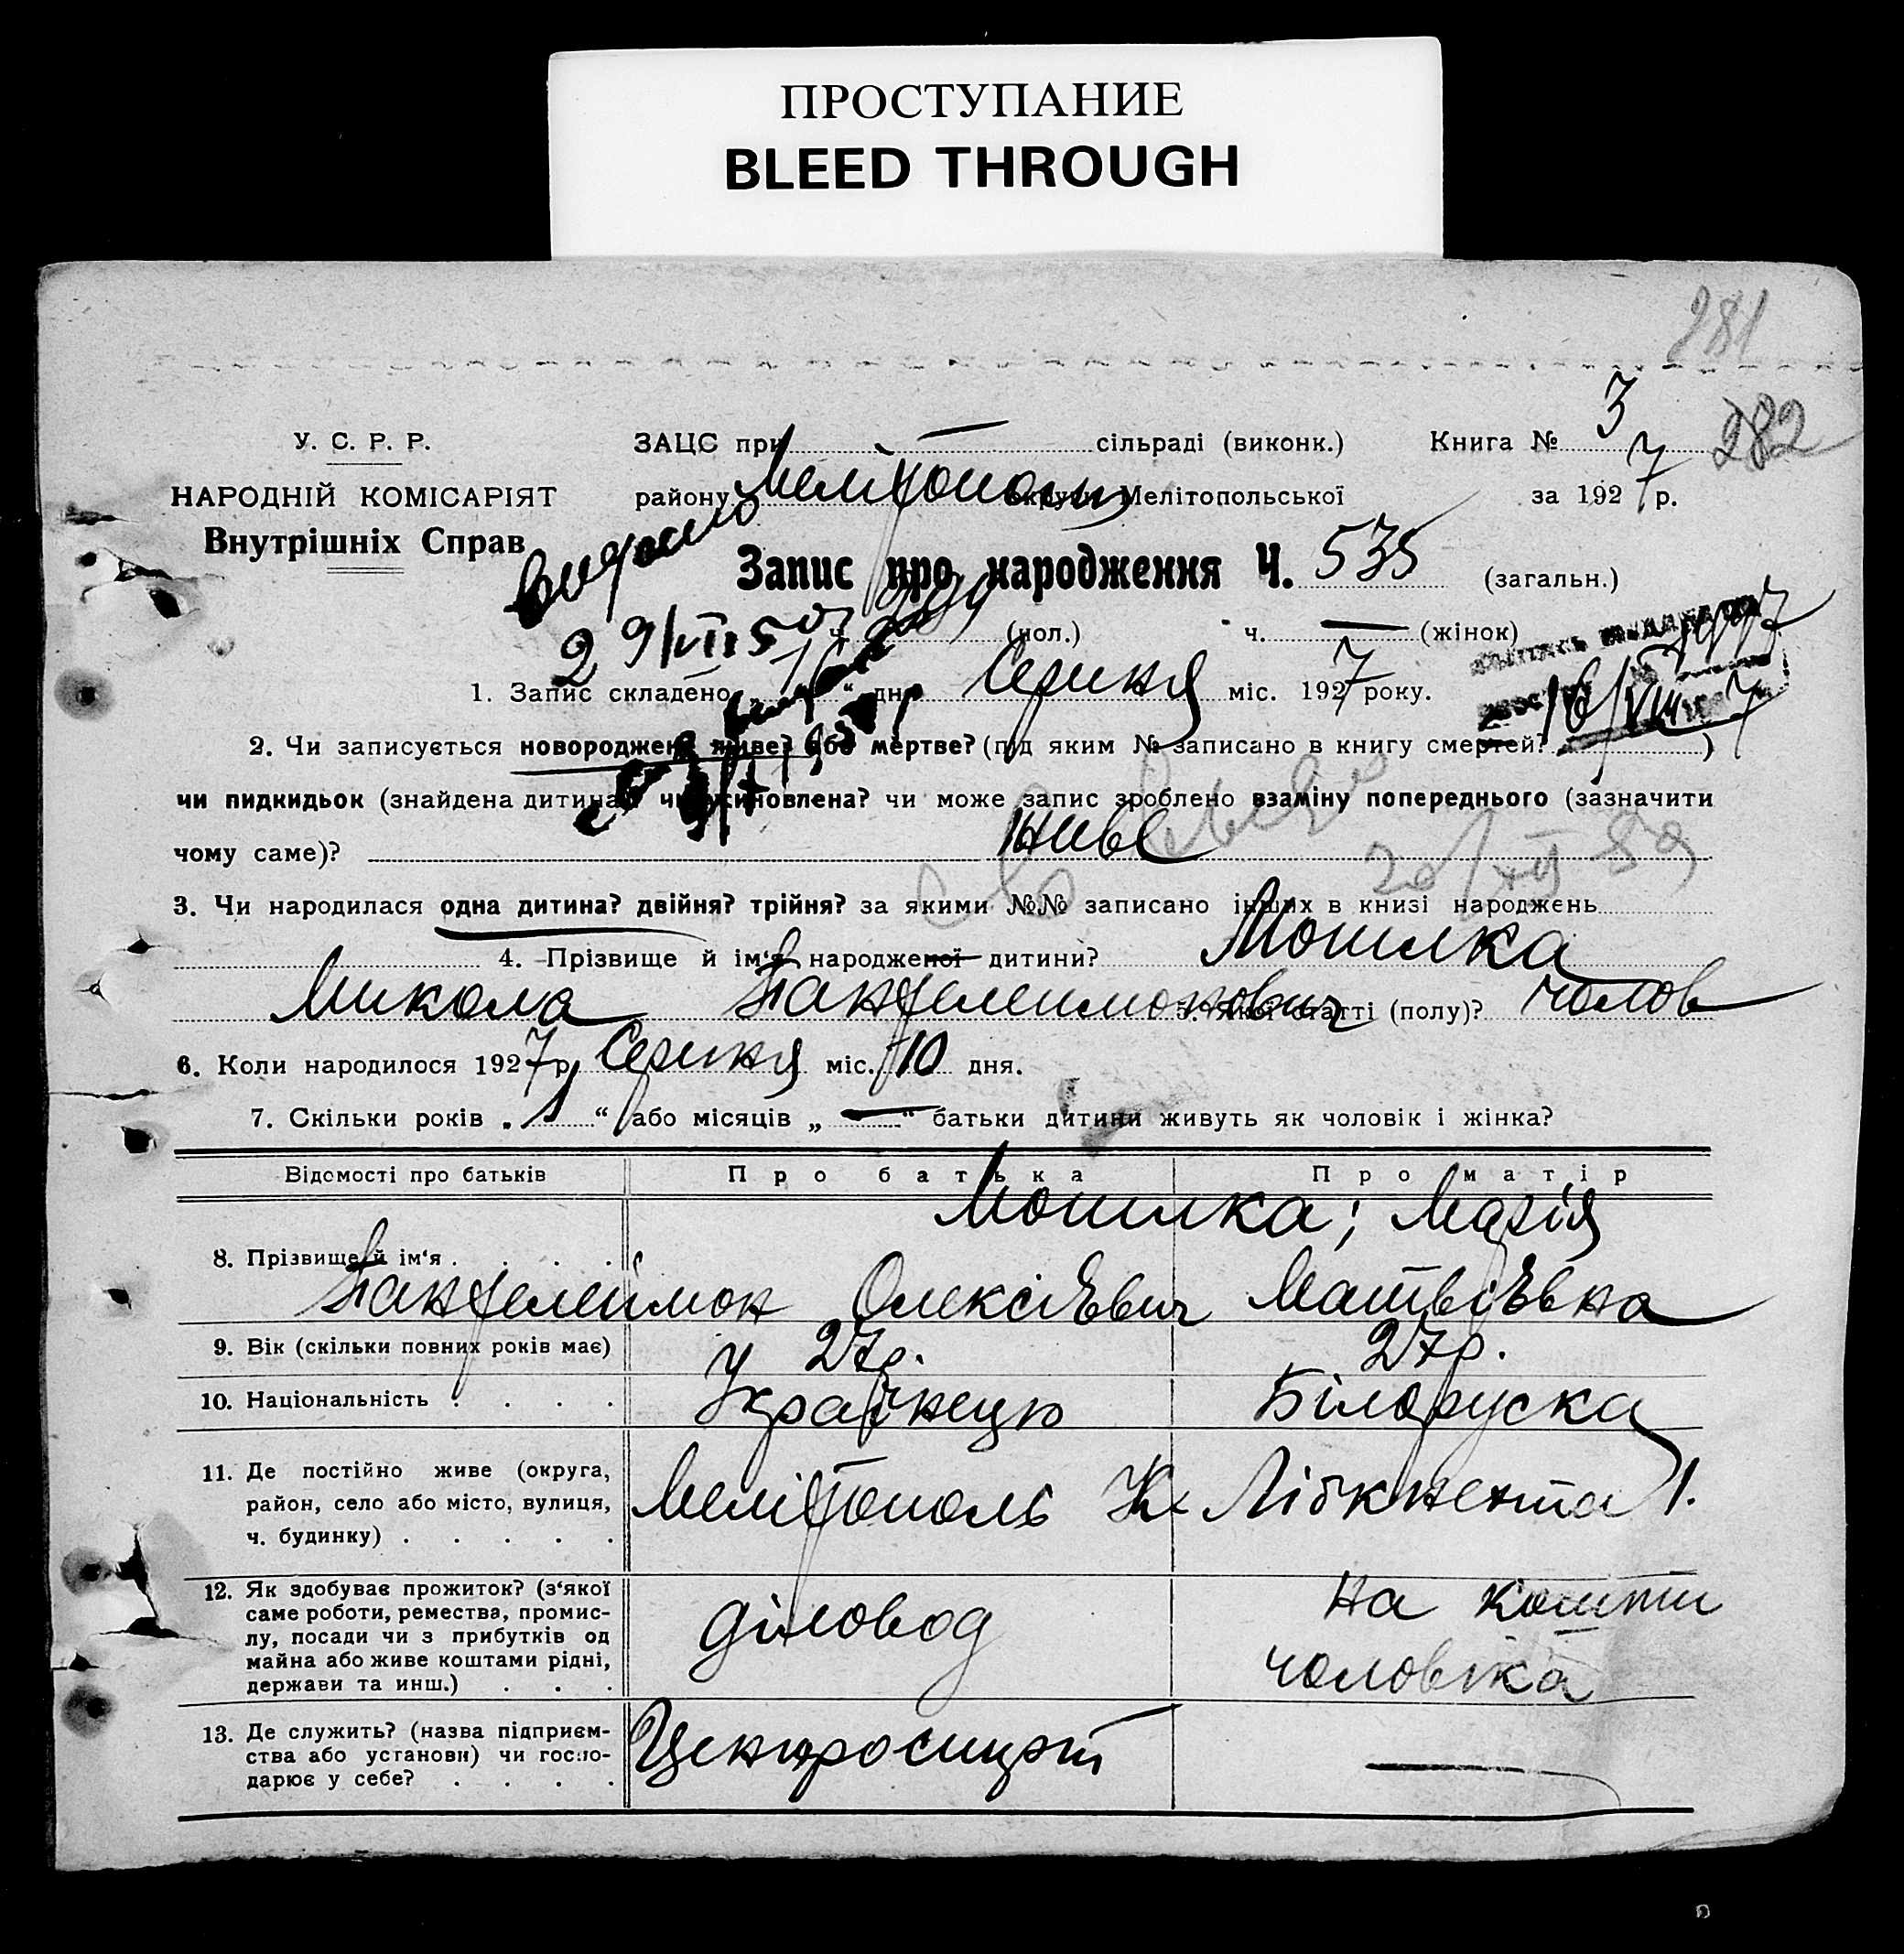 ПРОСТУПАНИЕ
BLEED THROUGH
281
У. С. Р. Р.
ЗАЦС при сільраді (виконк.) Книга № 3 282
НАРОДНІЙ КОМІСАРІЯТ
Внутрішніх Справ
району Мелітополь округи Мелітопольської за 1927 р.
Запис про народження Ч. 535 (загальн.)
ч. (чол.) ч. — (жінок)
29/VII 50
1. Запис складено „16“ дня Серпня міс. 1927 року.
16/VIII 7
2. Чи записується новороджене живе? або мертве? (під яким № записано в книгу смертей? )
чи пидкидьок (знайдена дитина) чи усиновлена? чи може запис зроблено взаміну попереднього (зазначити
чому саме)? живе
20/XII 89
3. Чи народилася одна дитина? двійня? трійня? за якими №№ записано інших в книзі народжень
4. Прізвище й ім‘я народженої дитини? Мошилка
Микола Пантелеимонович 5. Якої статті (полу)? чолов
6. Коли народилося 1927 р. Серпня міс. 10 дня.
7. Скільки років „1“ або місяців „—“ батьки дитини живуть як чоловік і жінка?
Відомості про батьків Про батька Про матір
8. Прізвище й ім‘я . . . . Мошилка; Марія
Пантелеймон Олексієвич Матвіївна
9. Вік (скільки повних років має) 27р. 27р.
10. Національність . . . . Українець Білоруска
11. Де постійно живе (округа,
район, село або місто, вулиця,
ч. будинку) . . . . .
Мелітополь К. Лібкнехта 1.
12. Як здобуває прожиток? (з‘якої
саме роботи, ремества, промис-
лу, посади чи з прибутків од
майна або живе коштами рідні,
держави та инш.) . . .
діловод
на кошти
чоловіка
13. Де служить? (назва підприєм-
ства або установи) чи госпо-
дарює у себе? . . . .
Центроспирт —